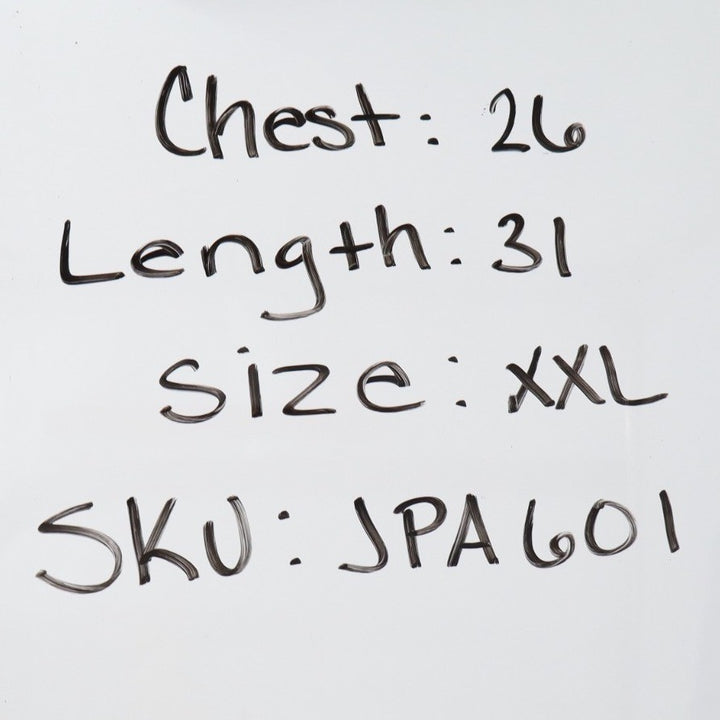 Chest: 26
Length: 31
Size: XXL
SKU: JPA601